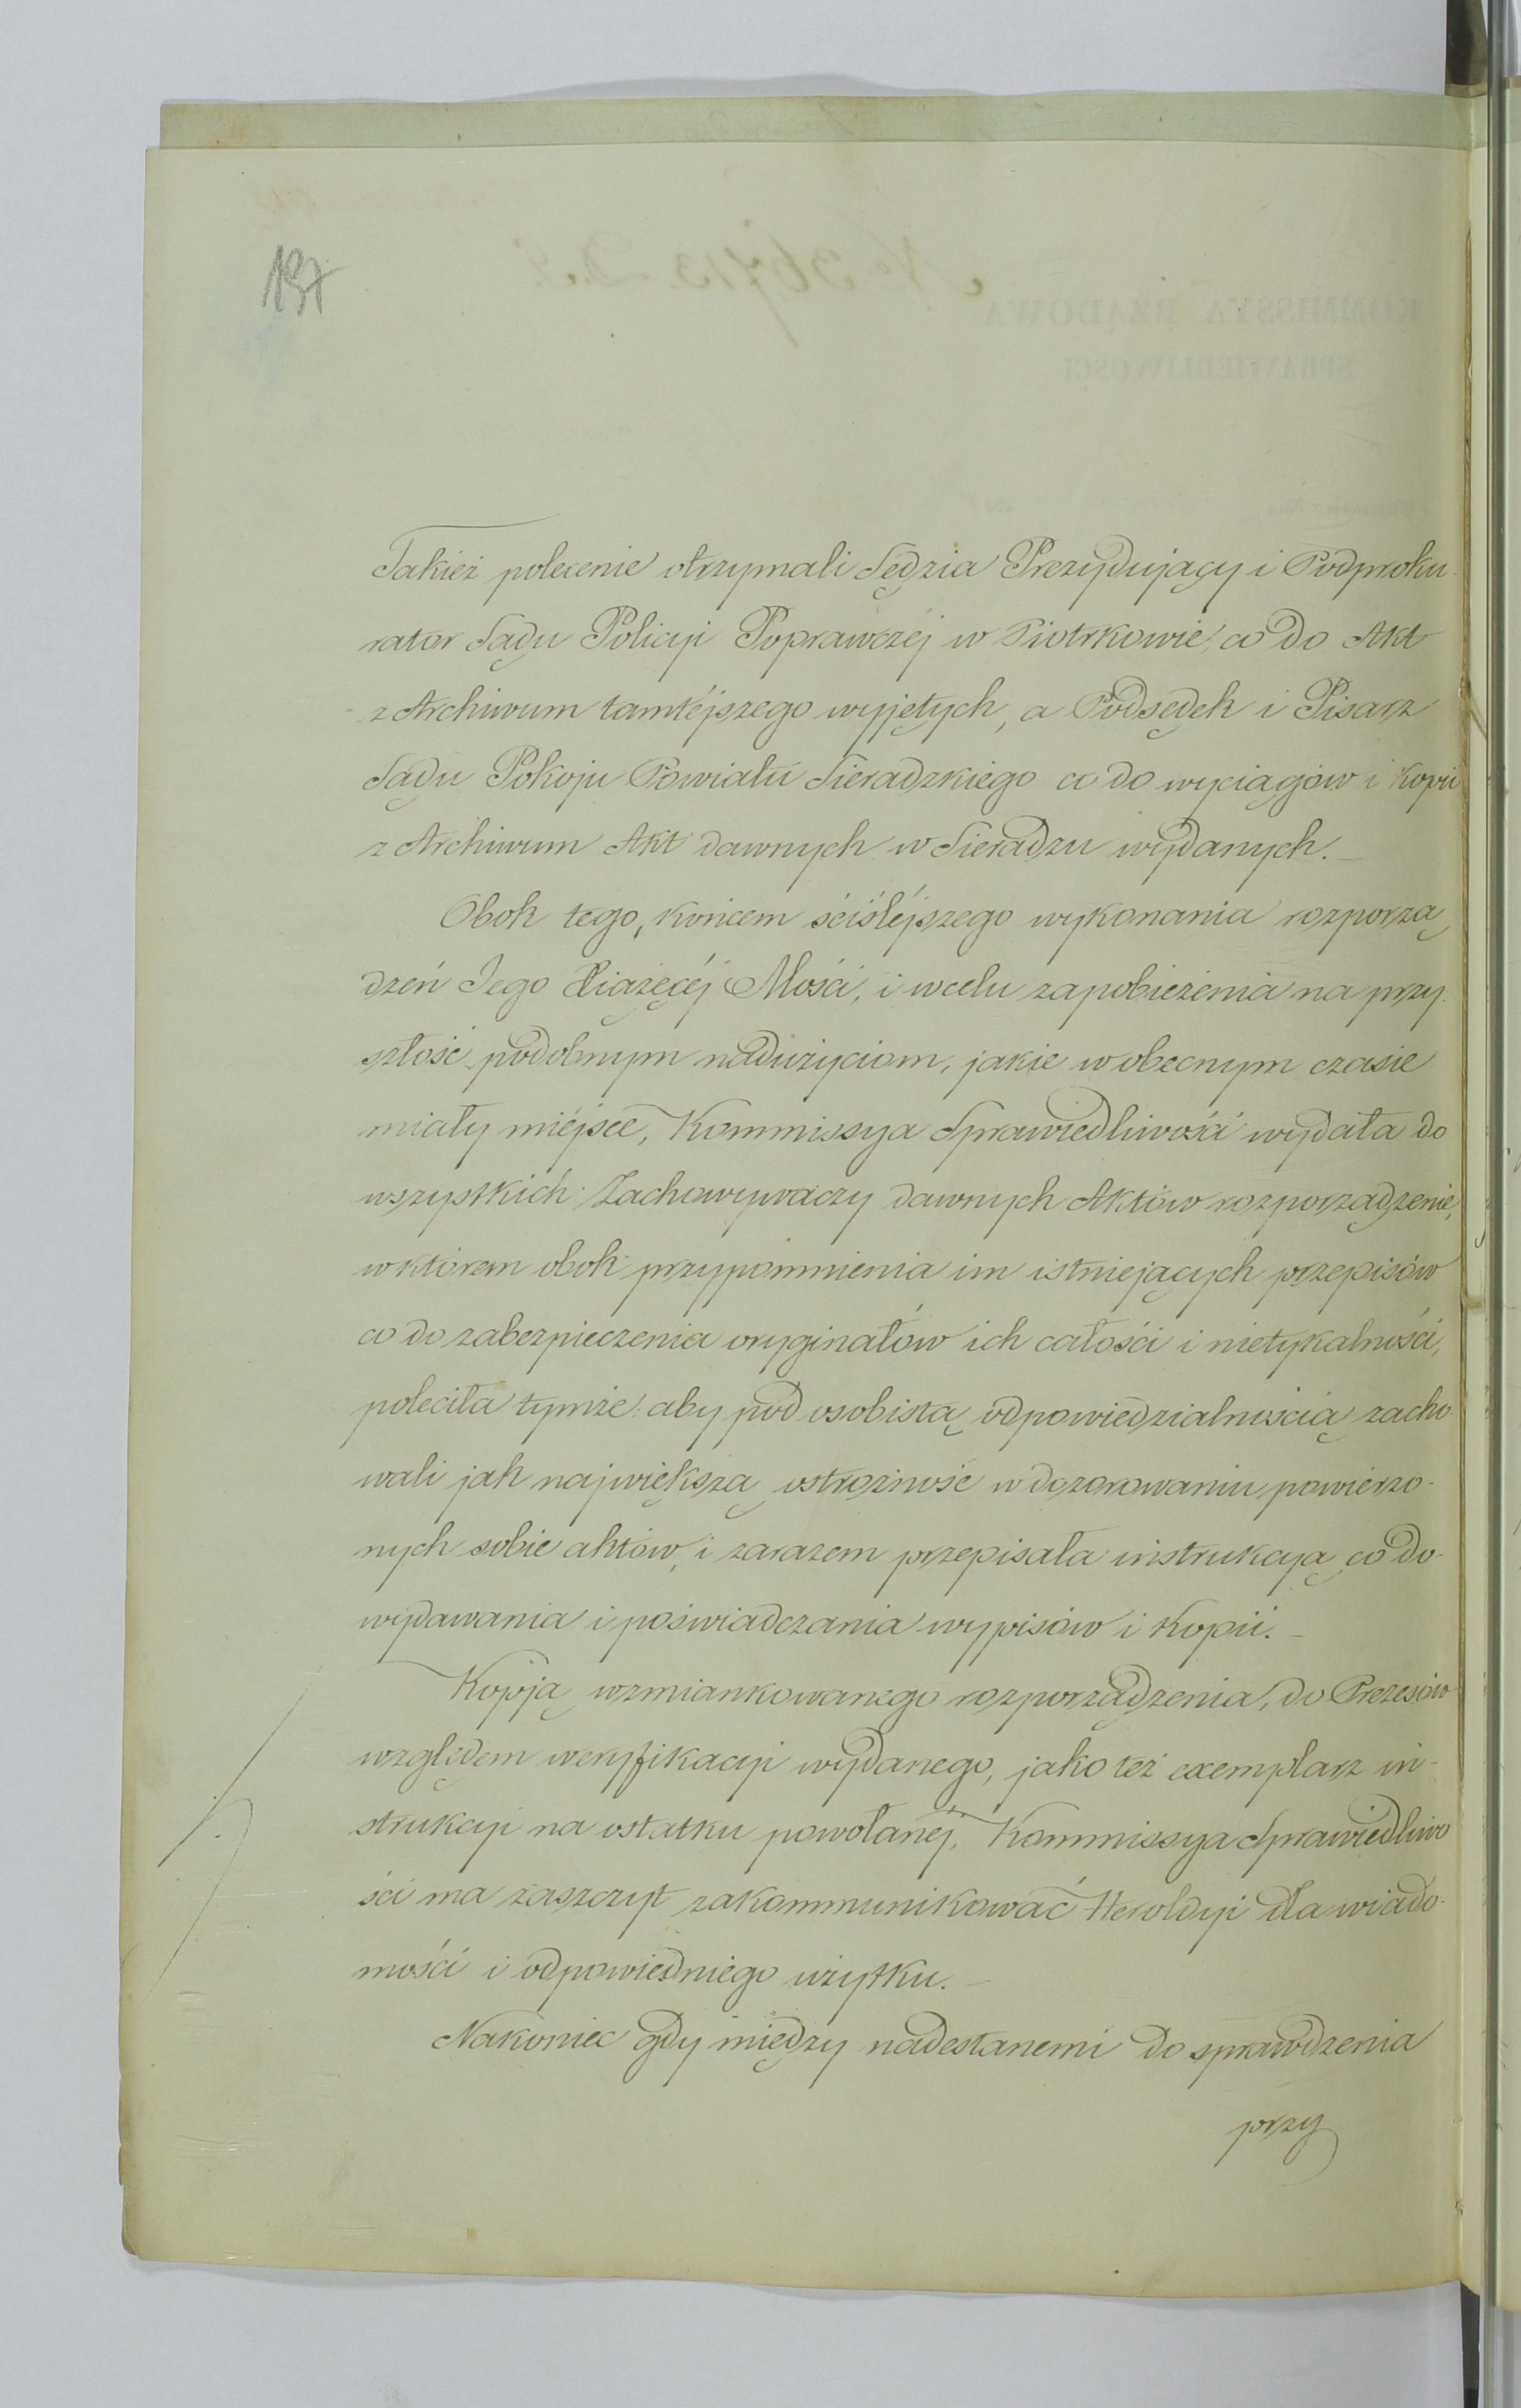 137
Takież polecenie otrzymali Sędzia Prezydujący i Podproku-
rator Sądu Policyi Poprawczéj w Piotrkowie, co do Akt
z Archiwum tamtéjszego wyjętych, a Podsędek i Pisarz
Sądu Pokoju Powiatu Sieradzkiego co do wyciągów i kopii
z Archiwum Akt dawnych w Sieradzu wydanych. _
Obok tego, końcem ściśléjszego wykonania rozporzą
dzeń Jego Xiążęcéj Mości, i w celu zapobieżenia na przy-
szłość podobnym nadużyciom, jakie w obecnym czasie
miały miéjsce, Kommissya Sprawiedliwości wydała do
wszystkich Zachowywaczy dawnych Aktów rozporządzenie,
w którem obok przypomnienia im istniejących przepisów
co do zabezpieczenia oryginałów ich całości i nietykalności,
poleciła tymże: aby pod osobistą odpowiedzialnością zacho-
wali jak największą ostrożność w dozorowaniu powierzo-
nych sobie aktów, i zarazem przepisała instrukcyą co do-
wydawania i poświadczania wypisów i kopii. _
Kopją wzmiankowanego rozporządzenia, do Prezesów
względem weryfikacyi wydanego, jako też exemplarz in-
strukcyi na ostatku powołanéj, Kommissya Sprawiedliwo
ści ma zaszczyt zakommunikować Heroldyi dla wiado-
mości i odpowiedniego użytku. _
Nakoniec gdy między nadesłanemi do sprawdzenia
przy